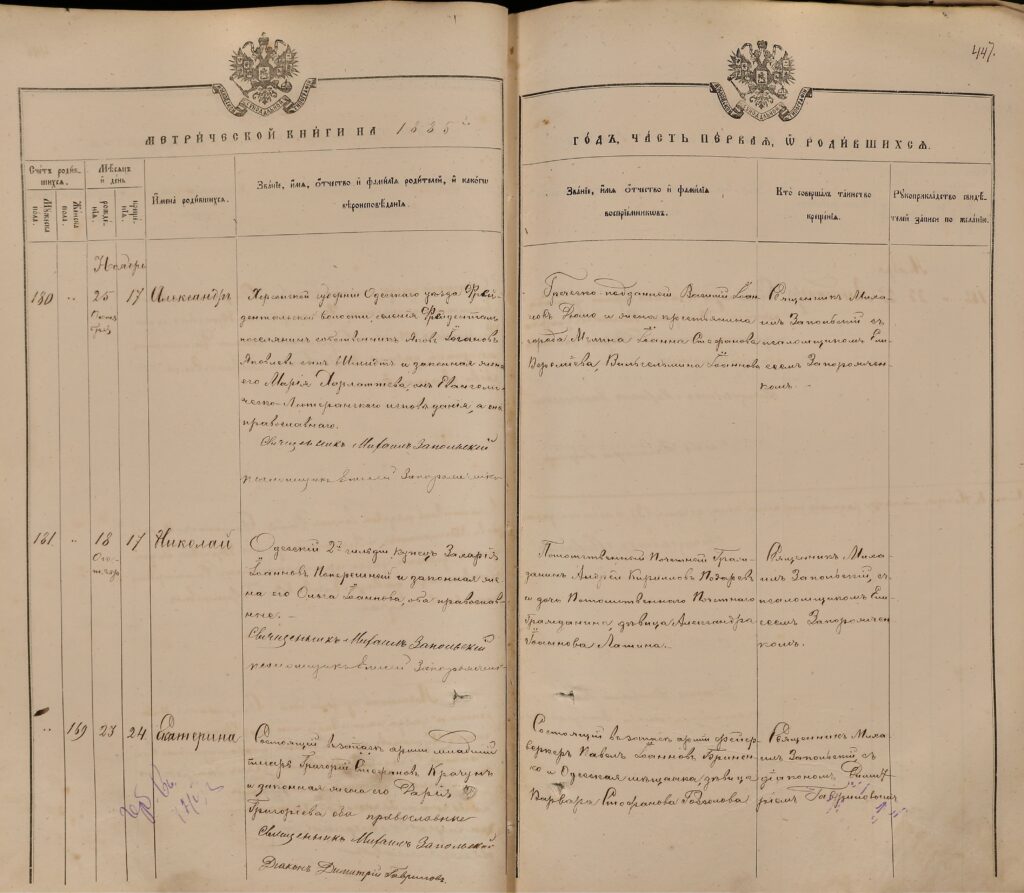 447.
МЕТРИЧЕСКОЙ КНИГИ НА 1885
ГОДЪ, ЧАСТЬ ПЕРВАЯ, Ѿ РОДИВШИХСЯ.
Счетъ родившихся.
Мужеска пола.
Женска пола.
Мѣсяцъ и день
рожденія.
крещенія.
Имена родившихся.
Званіе, имя, отчество и фамилія родителей, и какого вѣроисповѣданія.
Званіе, имя отчество и фамилія воспріемниковъ.
Кто совершалъ таинство крещенія.
Рукоприкладство свидѣтелей записи по желанію.
Ноябрь
180 " 25 17 Александръ
Херсонской губерніи Одесскаго уѣзда Фрей-
дентальской волости, селенія Фрейденталь
поселянинъ собственникъ Яковъ
Яковлевъ сынъ Шмидтъ и законная жена
его Марія Харлампіева, онъ Евангеличе-
ческо-Лютеранскаго исповѣданія, а она
православнаго.
Священникъ Михаилъ Запольскій
псаломщикъ Елисей
Греческо-подданный Василій Іоан-
новъ Димо и жена
города Іоанна Стефанова
Вильгельмина Іоаннова
Священникъ Миха-
илъ Запольскій съ
псаломщикомъ Ели-
сеемъ
комъ.
181 " 18 17 Николай
Октября
Одесскій 2й гильдіи купецъ Захарій
Іоанновъ и законная же-
на его Ольга Іоаннова, оба православ-
ные.
Священникъ Михаилъ Запольскій
псаломщикъ Елисей
Потомственный Почетный Граж-
данинъ Андрей Кирилловъ
и дочь Потомственнаго Почетнаго
Гражданина, дѣвица Александра
Іоаннова
Священникъ Миха-
илъ Запольскій, съ
псаломщикомъ Ели-
сеемъ
комъ.
" 169 23 24 Екатерина
Состоящій въ запасѣ арміи младшій
писарь Григорій Стефановъ Крачунъ
и законная жена его Дарія
Григорьева оба православные
Священникъ Михаилъ Запольскій
Діаконъ Димитрій Гавриловъ.
Состоящій въ запасѣ арміи фейер-
веркеръ Павелъ Іоанновъ Гринен-
ко и Одесская мѣщанка дѣвица
Варвара Стефанова
Священникъ Миха-
илъ Запольскій съ
діакономъ Димит-
ріемъ